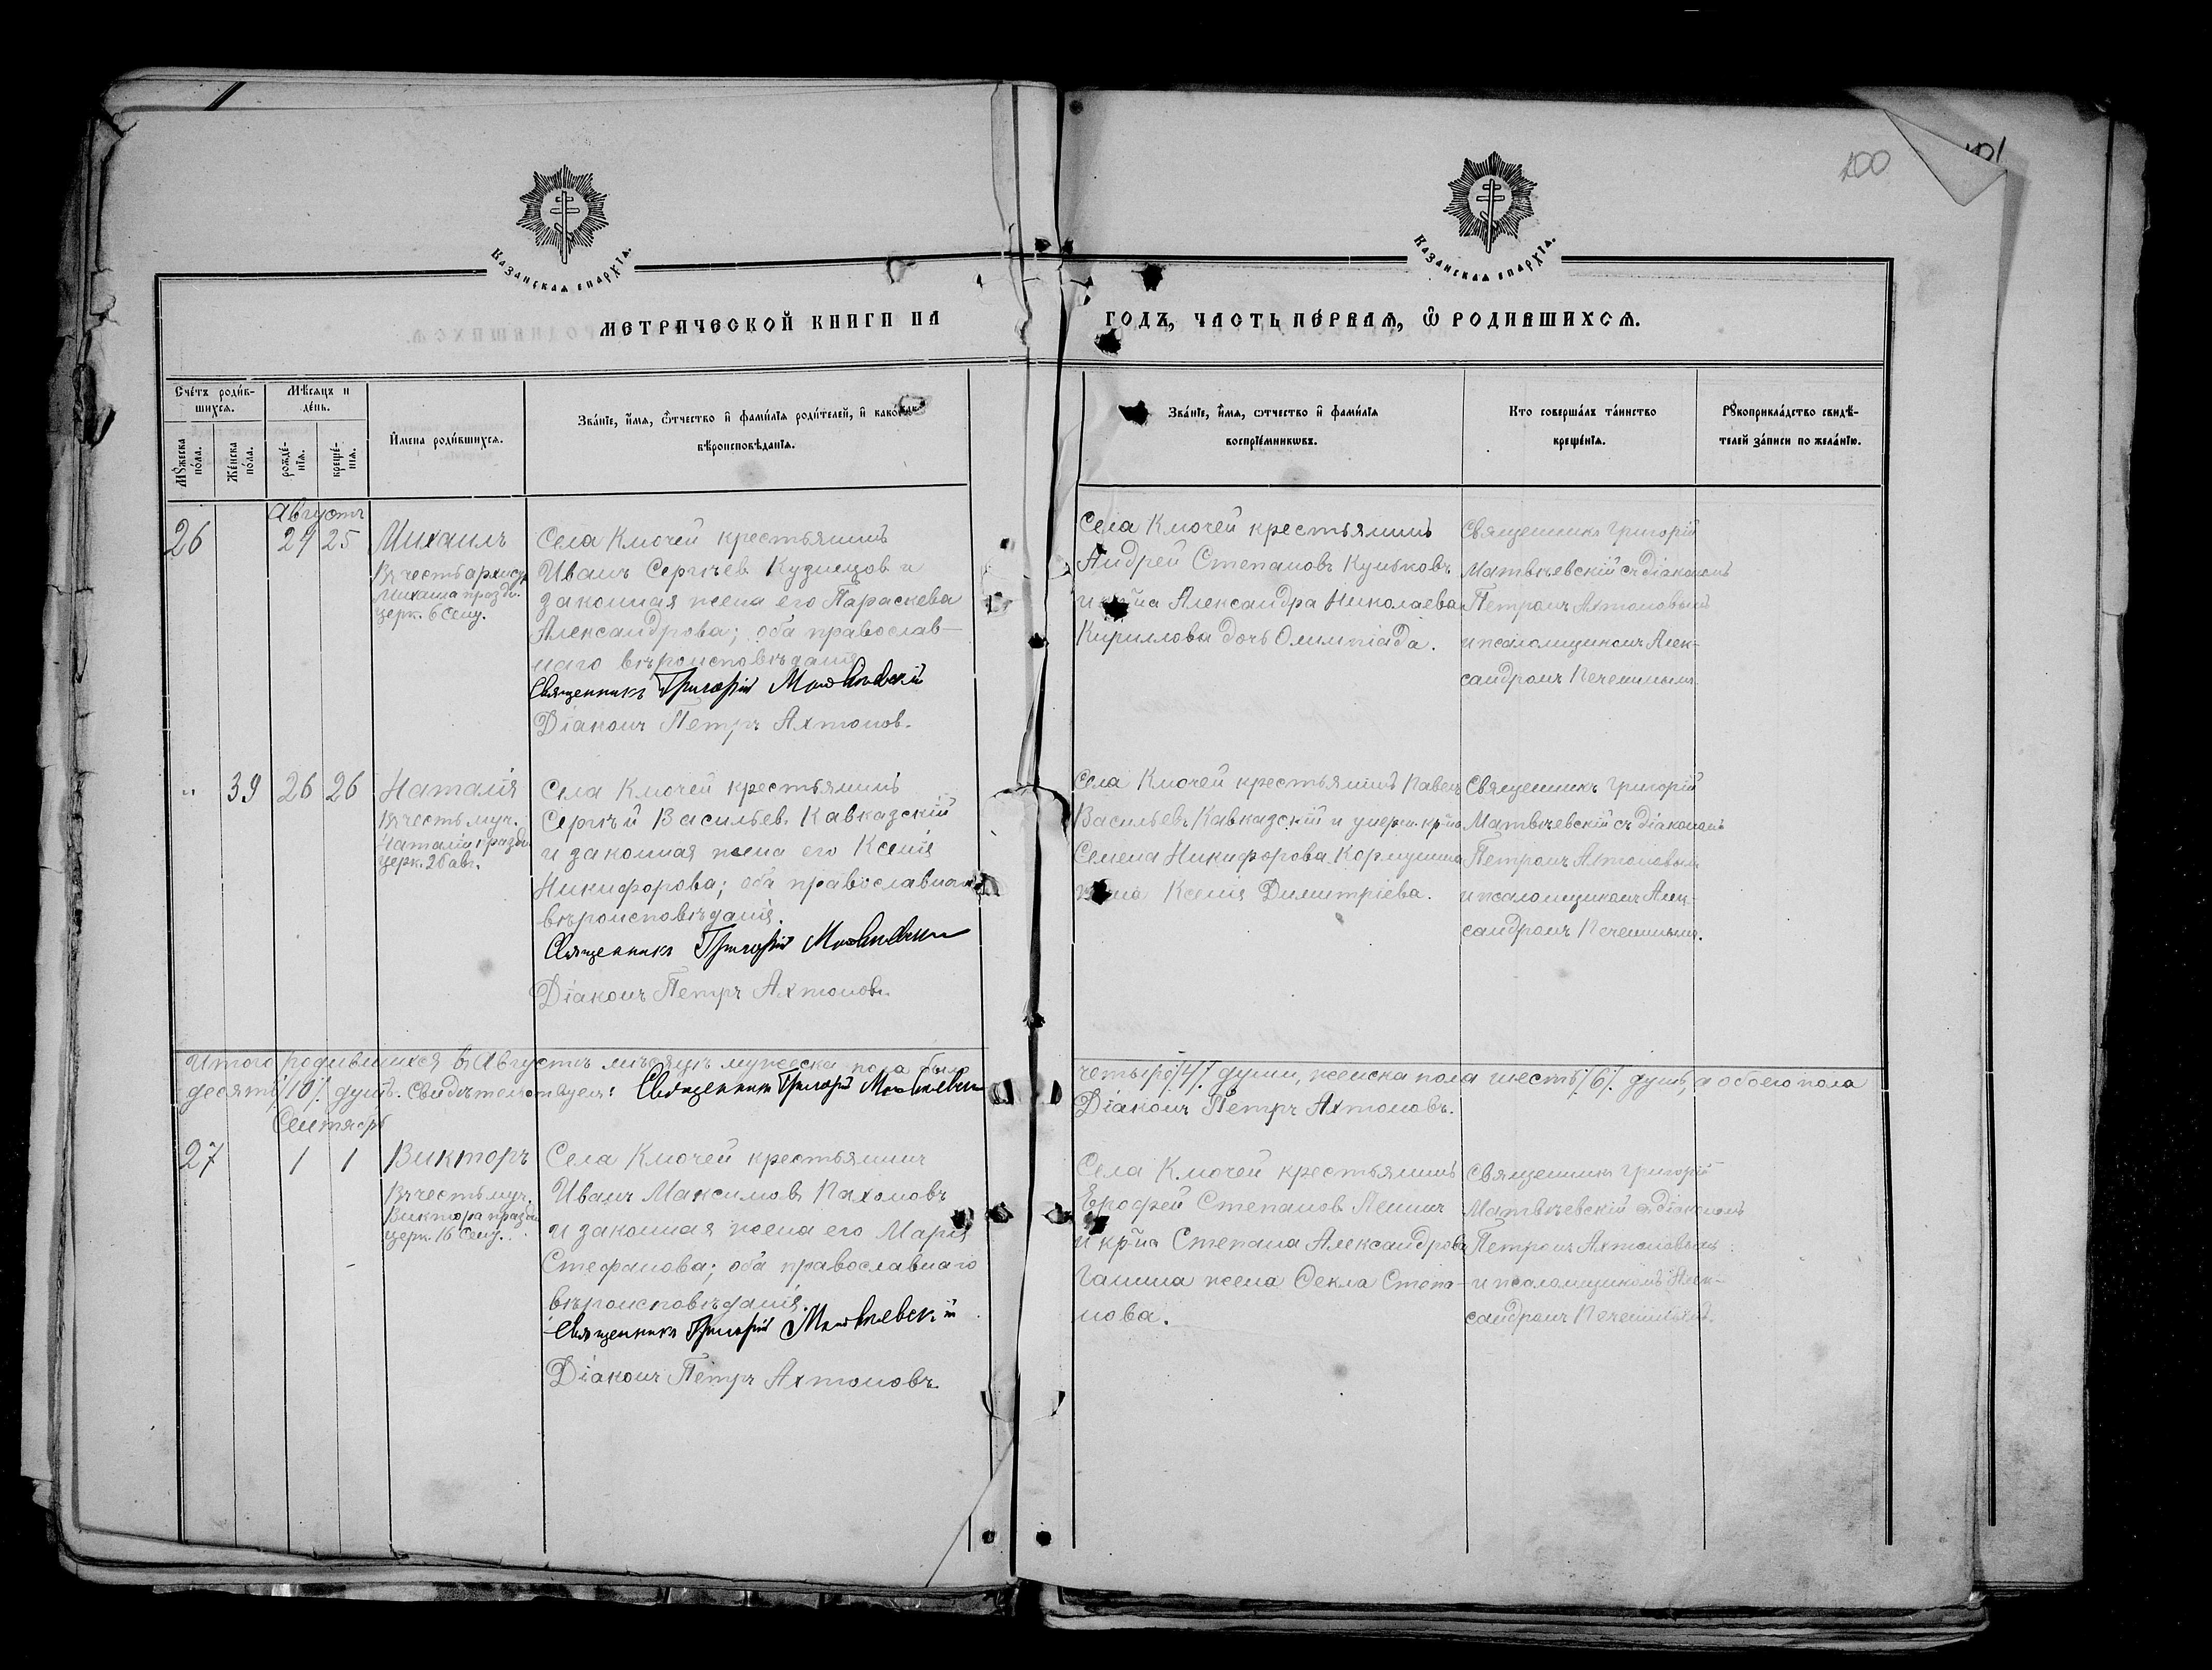 100
101
Казанская епархїѧ.
Казанская епархїѧ.
МЕТРИЧЕСКОЙ КНИГИ НА
ГОДЪ, ЧАСТЬ ПЕРВАЯ, Ѿ РОДИВШИХСѦ.
Счéтъ роди́в-
шихсѧ.
Мꙋжеска
пóла.
Жéнска
пóла.
Мѣ́сяцъ и
дéнь.
рождé-
нїѧ.
крещé-
нїѧ.
И҆мена роди́вшихсѧ.
Звáнїе, и҆́мѧ, ѻ҆́тчество и҆ фами́лїѧ роди́телей, и҆ какого
вѣроисповѣ́данїѧ.
Звáнїе, и҆́мѧ, ѻтчество и҆ фами́лїѧ
воспрїéмникωвъ.
Кто совершáлъ тáинство
крещéнїѧ.
Рꙋкоприклáдство свидѣ́-
телей зáписи по желáнїю.
Августъ
26
24 25
Михаилъ
Въ честь архистр.
Михаила праздн.
церк. 6 Сент.
Села Ключей крестьянинъ
Иванъ Сергѣев Кузнецов и
законная жена его Параскева
Александрова; оба православ-
наго вѣроисповѣданія
Священникъ Григорій Матвѣевскій
Діаконъ Петръ Ахтонов.
Села Ключей крестьянинъ
Андрей Степановъ
и кр-на Александра Николаева
Кириллова дочь Олимпіада.
Священникъ Григорій
Матвѣевскій съ діакономъ
Петромъ Ахтоновымъ
и псаломщикомъ Алек-
сандромъ Печенинымъ
" 39 26 26
Наталія
Въ честь муч.
Наталіи праздн.
церк. 26 авг.
Села Ключей крестьянинъ
Сергѣй Васильев Кавказскій
и законная жена его Ксенія
Никифорова; оба православнаго
вѣроисповѣданія.
Священникъ Григорій Матвѣевскій
Діаконъ Петръ Ахтоновъ
Села Ключей крестьянинъ Павелъ
Васильевъ Кавказскій и умерш. кр-на
Семена Никифорова
жена Ксенія Димитріева.
Священникъ Григорій
Матвѣевскій съ діакономъ
Петромъ Ахтоновымъ
и псаломщикомъ Алек-
сандромъ Печенинымъ.
Итого родившихся въ Августѣ мѣсяцѣ мужеска пола было
четыре /4/ души, женска пола шесть /6/ душъ, а обоего пола
десять /10/ душъ. Свидѣтельствуемъ: Священникъ Григорій Матвѣевскій
Діаконъ Петръ Ахтоновъ.
Сентябрь
27
1 1
Викторъ
Въ честь муч.
Виктора праздн.
церк. 16 Сент.
Села Ключей крестьянинъ
Иванъ Максимовъ Пахомовъ
и законная жена его Марія
Стефанова; оба православнаго
вѣроисповѣданія.
Священникъ Григорій Матвѣевскій
Діаконъ Петръ Ахтоновъ.
Села Ключей крестьянинъ
Ерофей Степанов
и кр-на Степана Александрова
жена Ѳекла Степа-
нова.
Священникъ Григорій
Матвѣевскій съ діакономъ
Петромъ Ахтоновымъ
и псаломщикомъ Алек-
сандромъ Печенинымъ.